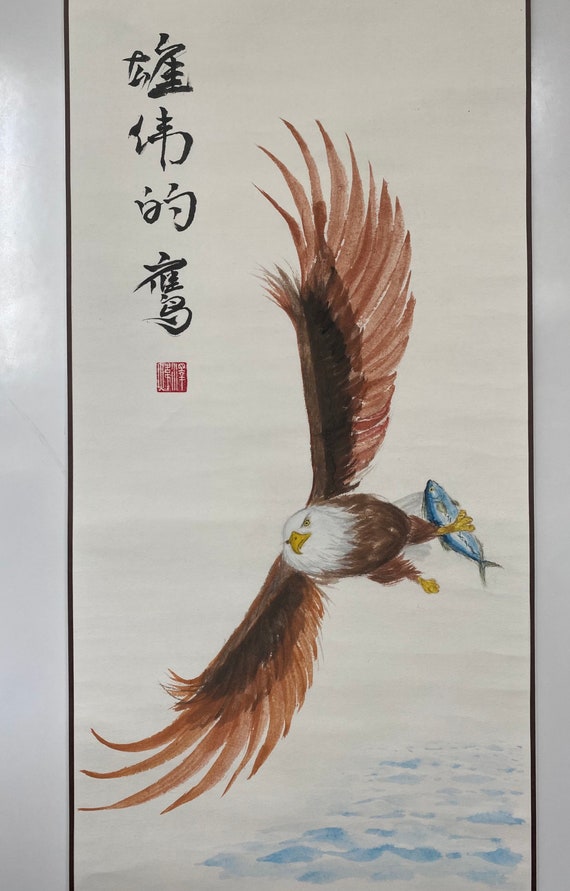 雄伟的鹰